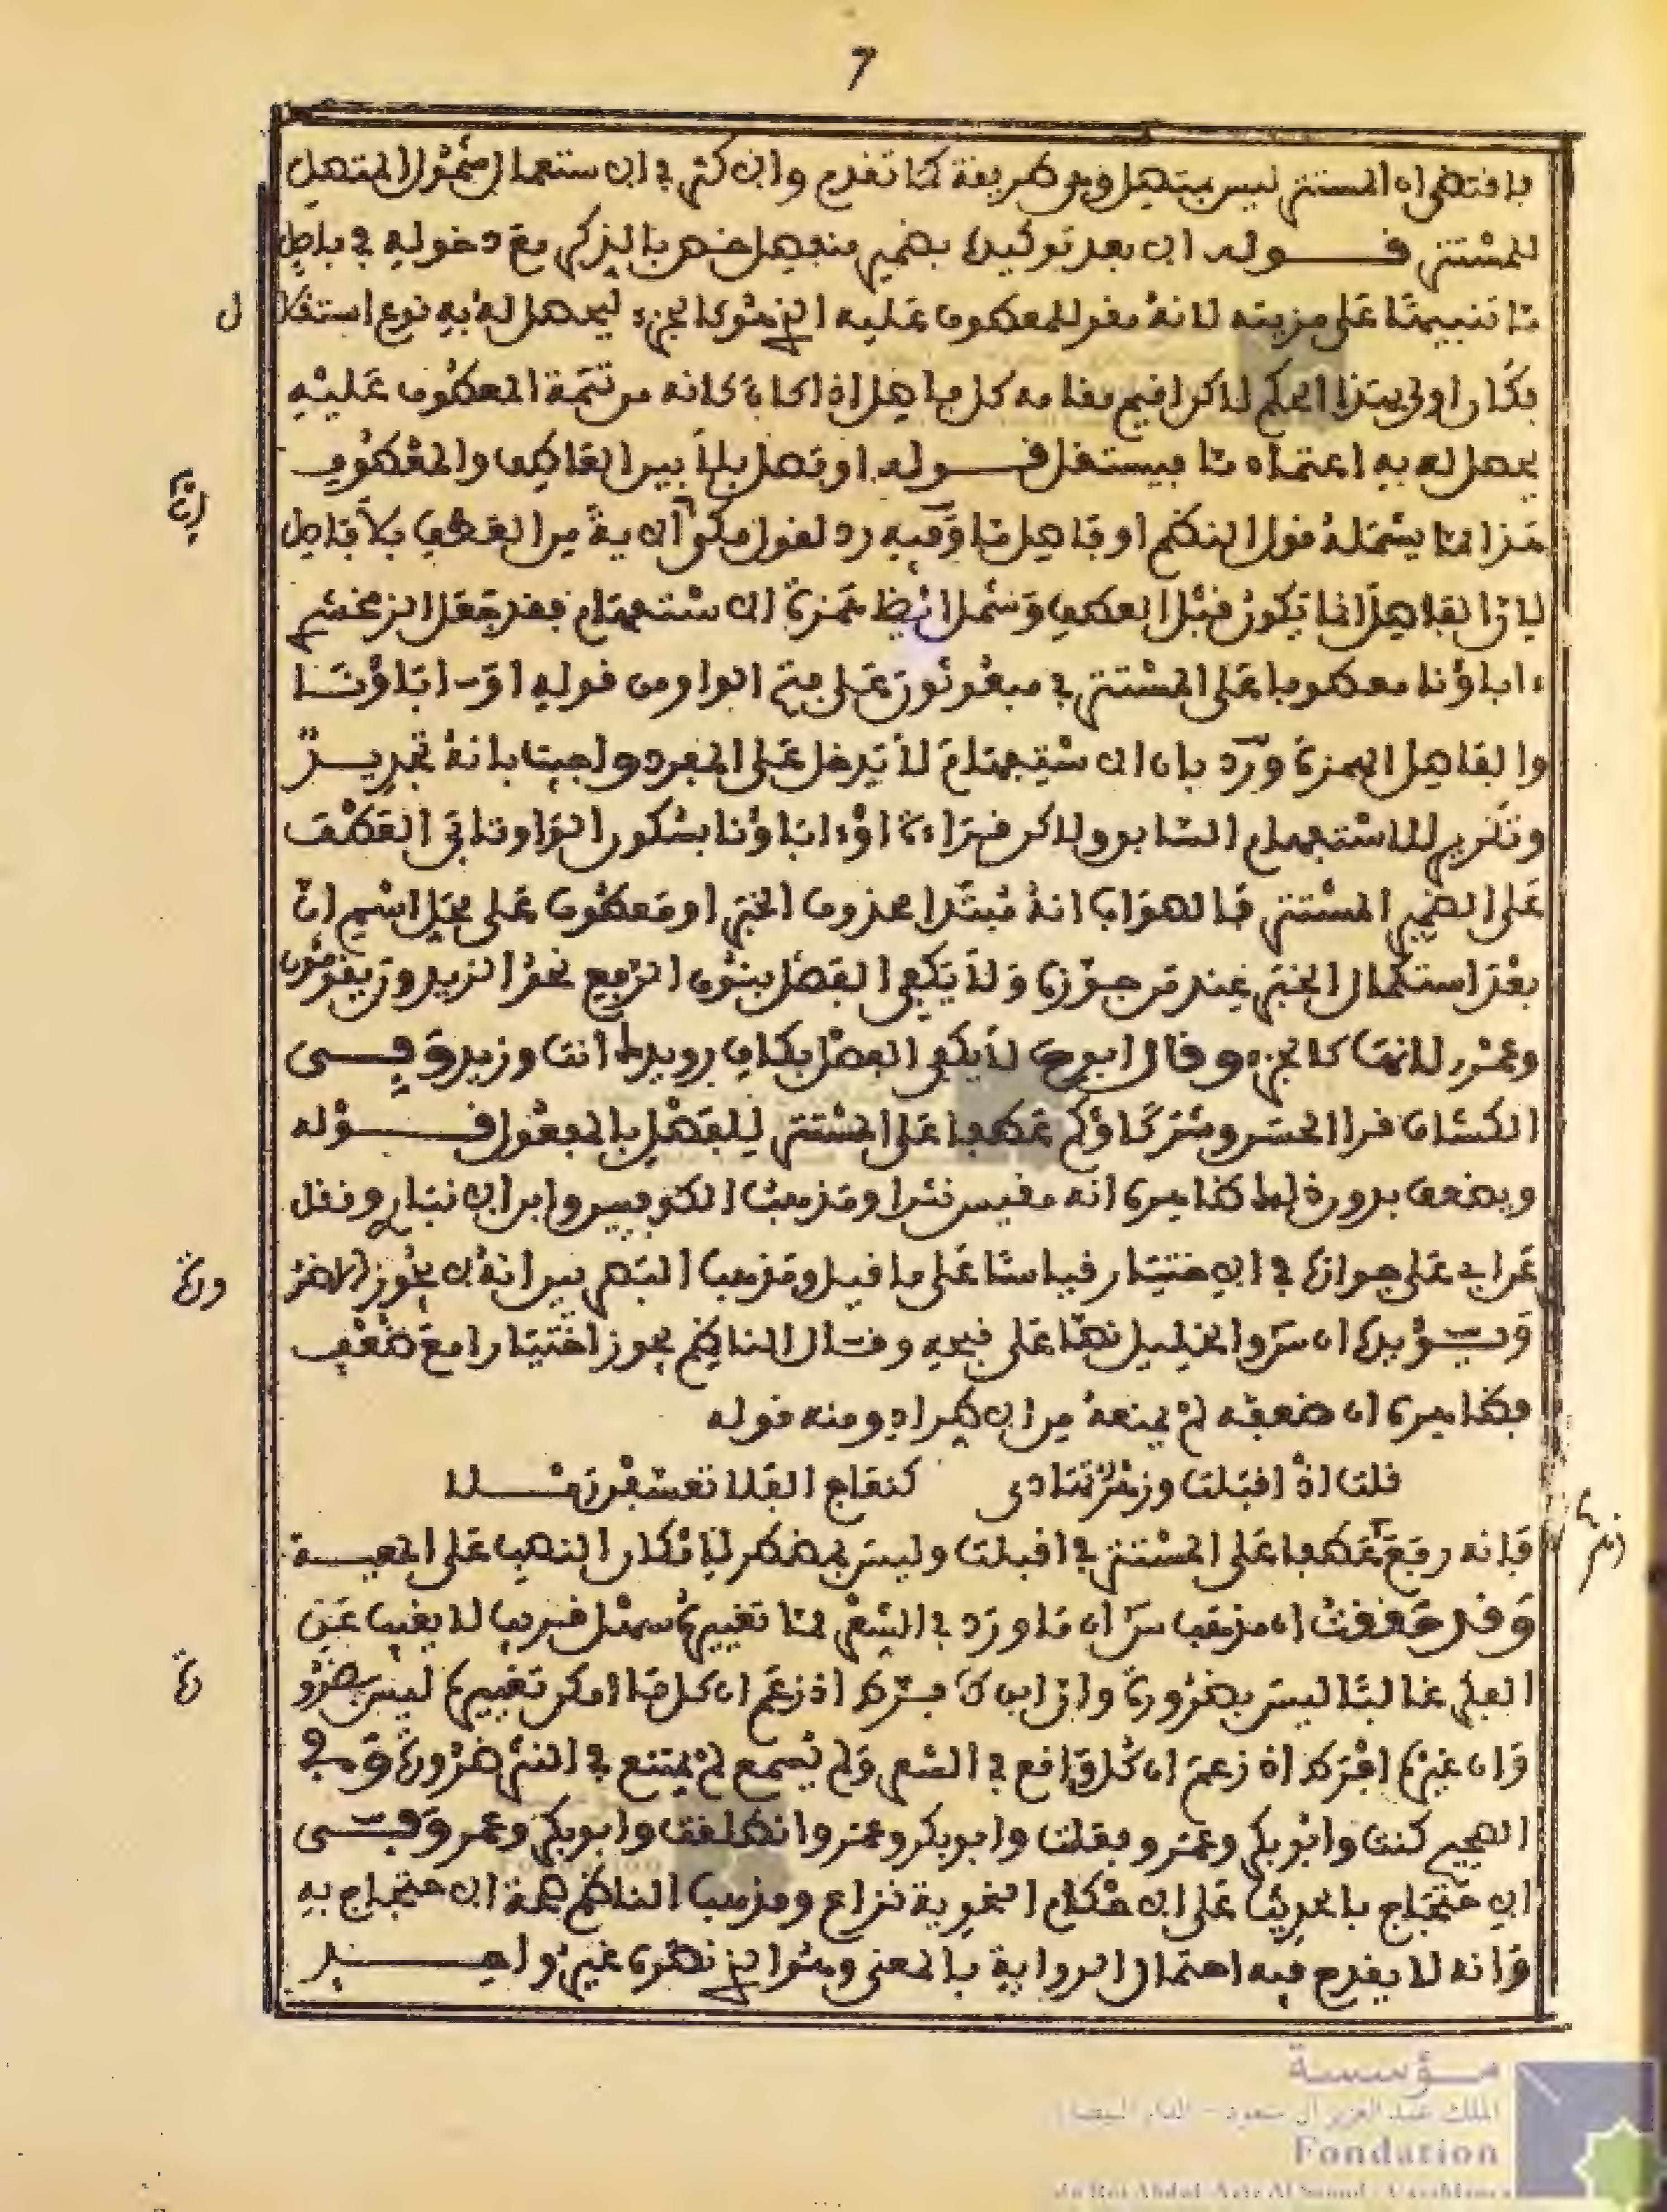 7
فاقتضى ان المستتر ليس بمتصل وهو طريقة كما تقدم وان كثر في الاستعمال شمول المتصل
للمستتر قوله الا بعد توكيده بضمير منفصل خصه بالذكر مع دخوله في فاصل
ما تنبيها على مزيته لانه مقو للمعطوف عليه الذي هو كالجزء ليحصل له به نوع استقلا
ل
فكان اولى بهذا الحكم لاكن اقيم مقامه كل فاصل اذا كان كانه من تتمة المعطوف عليه
يحصل له به اعتماد ما فيستقل قوله او فصل بلا بين العاطف والمعطوف
هذا مما يشمله قول الناظم او فاصل ما وفيه رد لقول الاية من العطف بلا فاصل
لان الفاصل انما يكون قبل العطف وشمل ايضا همزة الاستفهام فقد جعل الزمخشري
ءاباؤنا معطوفا على المستتر في مبعوثون على فتح الواو من قوله او اباؤنا
والفاصل الهمزة ورد بان الاستفهام لا يدخل على المفرد واجيب بانه تجديد
وتكرير للاستفهام السابق ولاكن قراءة او ءاباؤنا بسكون الواو تابى العطف
على الضمير المستتر فالصواب انه مبتدا محذوف الخبر او معطوف على محل اسم ان
بعد استكمال الخبر عند من جوزه ولا يكفي الفصل بنون الرفع نحو الزيدون يقومون
وعمرو لانها كالجزء وقال ابو ح لا يكفي الفصل بكاف رويدك انت وزيد وفي
الكشاف قرا الحسن وشركاؤكم عطفا على المستتر للفصل بالمفعول قوله
وبضعف بدونه ظاهره انه مقيس نثرا ومذهب الكوفيين وابن الانباري ونقل
عن ابي علي جوازه في الاختيار قياسا على ما قيل ومذهب البصريين انه لا يجوز الا ضر
ورة
ويؤيده ان س والخليل نصا على قبحه وقال الناظم يجوز اختيارا مع ضعف
فظاهره ان ضعفه لم يمنعه من الاطراد ومنه قوله
قلت اذ اقبلت وزهر تهادى كنعاج الفلا تعسفن رملا
فانه رفع عطفا على المستتر في اقبلت وليس بمضطر لامكان النصب على المعية
وقد حققت ان مذهب س ان ما ورد في الشعر مما تغييره سهل قريب لا يغيب عن
العلم غالبا ليس بضرورة وان ابن ك فرط اذ زعم ان كل ما امكن تغييره ليس بضرو
رة
وان غيره افرط اذ زعم ان كل واقع في الشعر ولم يسمع لم يمتنع في النثر ضرورة وفي
الصحيح كنت وابو بكر وعمر وفعلت وابو بكر وعمر وانطلقت وابو بكر وعمر وفي
الاحتجاج بالحديث على الاحكام النحوية نزاع ومذهب الناظم صحة الاحتجاج به
وانه لا يقدح فيه احتمال الرواية بالمعنى وهو الذي نصره غير واحد
مؤسسة
الملك عبد العزيز آل سعود - الدار البيضاء
Fondation
du Roi Abdul-Aziz Al Saoud - Casablanca